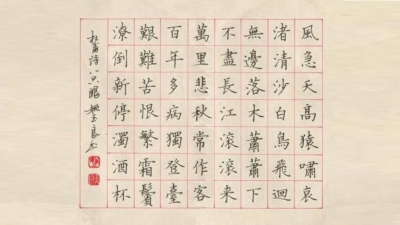 風急天高猿嘯哀
渚清沙白鳥飛迴
無邊落木蕭蕭下
不盡長江滾滾来
萬里悲秋常作客
百年多病獨登臺
艱難苦恨繁霜鬢
潦倒新停濁酒杯
杜甫詩